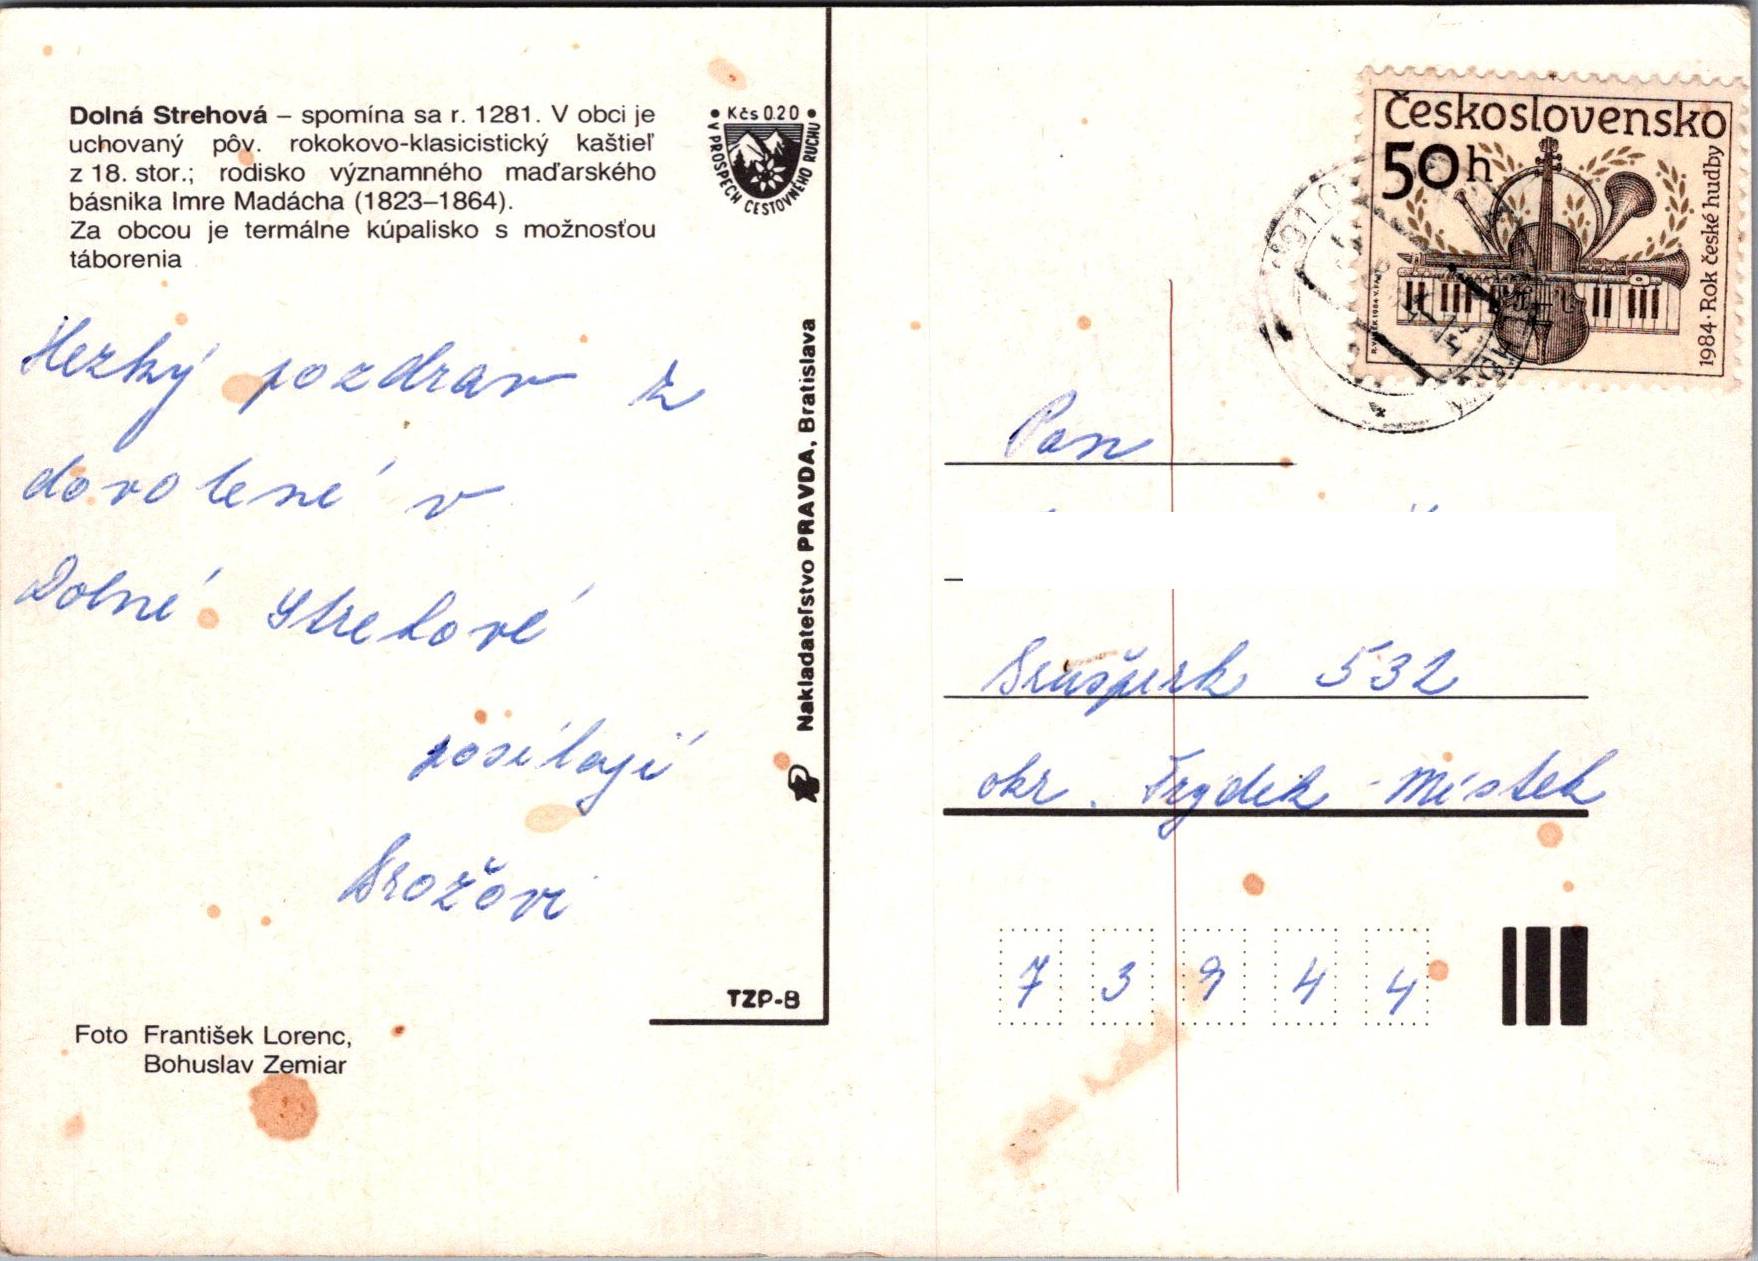 Dolná Strehová – spomína sa r. 1281. V obci je
uchovaný pôv. rokokovo-klasicistický kaštieľ
z 18. stor.; rodisko významného maďarského
básnika Imre Madácha (1823–1864).
Za obcou je termálne kúpalisko s možnosťou
táborenia
Kčs 0.20
V PROSPECH CESTOVNÉHO RUCHU
Hezký pozdrav z
dovolené v
Dolné Strehové
posílají
Brožovi
Nakladateľstvo PRAVDA, Bratislava
TZP-B
Foto František Lorenc,
Bohuslav Zemiar
Československo
50h
1984 · Rok české hudby
Pan
Brušperk 532
okr. Frýdek - Místek
73944